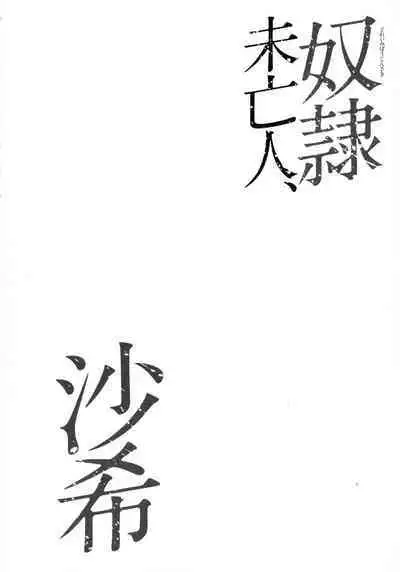 奴隷
未亡人、
沙希